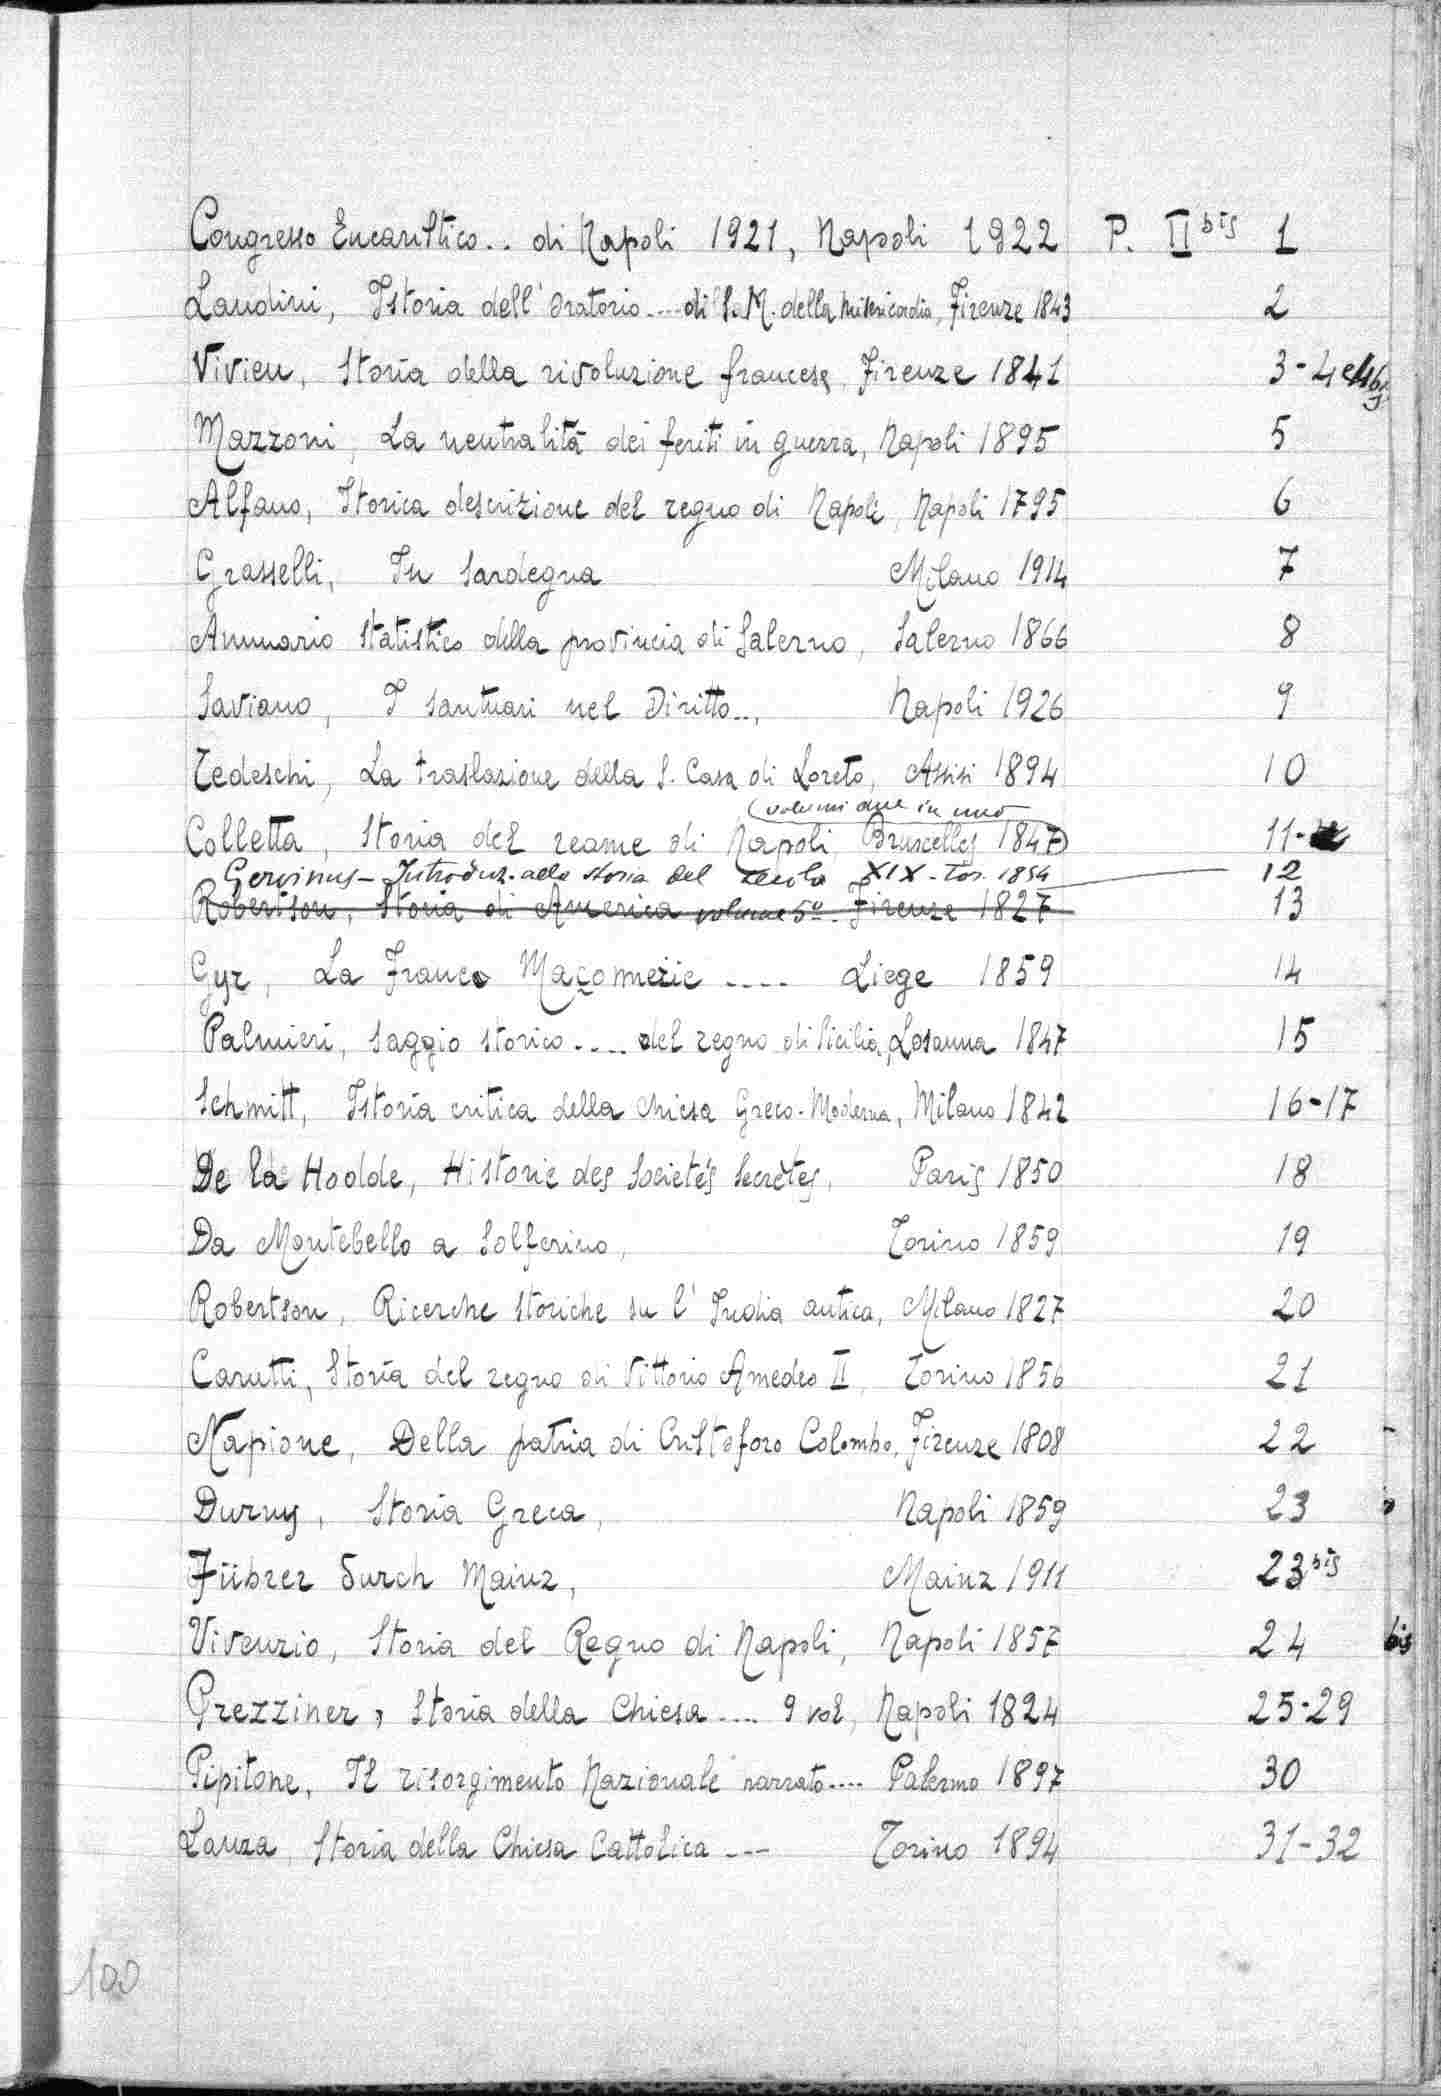 Congresso Eucaristico.. di Napoli 1921, Napoli 1922 P. II bis 1
Landini, Istoria dell'Oratorio.... di S. M. della Misericordia, Firenze 1843 2
Vivien, Storia della rivoluzione francese, Firenze 1841 3-4 e 4 bis
Mazzoni, La neutralità dei feriti in guerra, Napoli 1895 5
Alfano, Storica descrizione del regno di Napoli, Napoli 1795 6
Grasselli, In Sardegna Milano 1914 7
Annuario statistico della provincia di Salerno, Salerno 1866 8
Saviano, I santuari nel Diritto.., Napoli 1926 9
Tedeschi, La traslazione della S. Casa di Loreto, Assisi 1894 10
(volumi due in uno
Colletta, Storia del reame di Napoli, Bruxelles 1847) 11-
Gervinus - Introduz. alla storia del secolo XIX - Tor. 1854 12
Robertson, Storia di America volume 5º. Firenze 1827 13
Gyr, La Franco Maçonnerie .... Liege 1859 14
Palmieri, Saggio storico .... del regno di Sicilia, Losanna 1847 15
Schmitt, Istoria critica della chiesa Greco-Moderna, Milano 1842 16-17
De la Hodde, Historie des Societés Secrètes, Paris 1850 18
Da Montebello a Solferino, Torino 1859 19
Robertson, Ricerche storiche su l'India antica, Milano 1827 20
Carutti, Storia del regno di Vittorio Amedeo II, Torino 1856 21
Napione, Della patria di Cristoforo Colombo, Firenze 1808 22
Duruy, Storia Greca, Napoli 1859 23
Führer durch Mainz, Mainz 1911 23 bis
Vivenzio, Storia del Regno di Napoli, Napoli 1857 24 bis
Prezziner, Storia della Chiesa .... 9 vol, Napoli 1824 25-29
Pipitone, Il risorgimento Nazionale narrato.... Palermo 1897 30
Lanza, Storia della Chiesa Cattolica --- Torino 1894 31-32
100